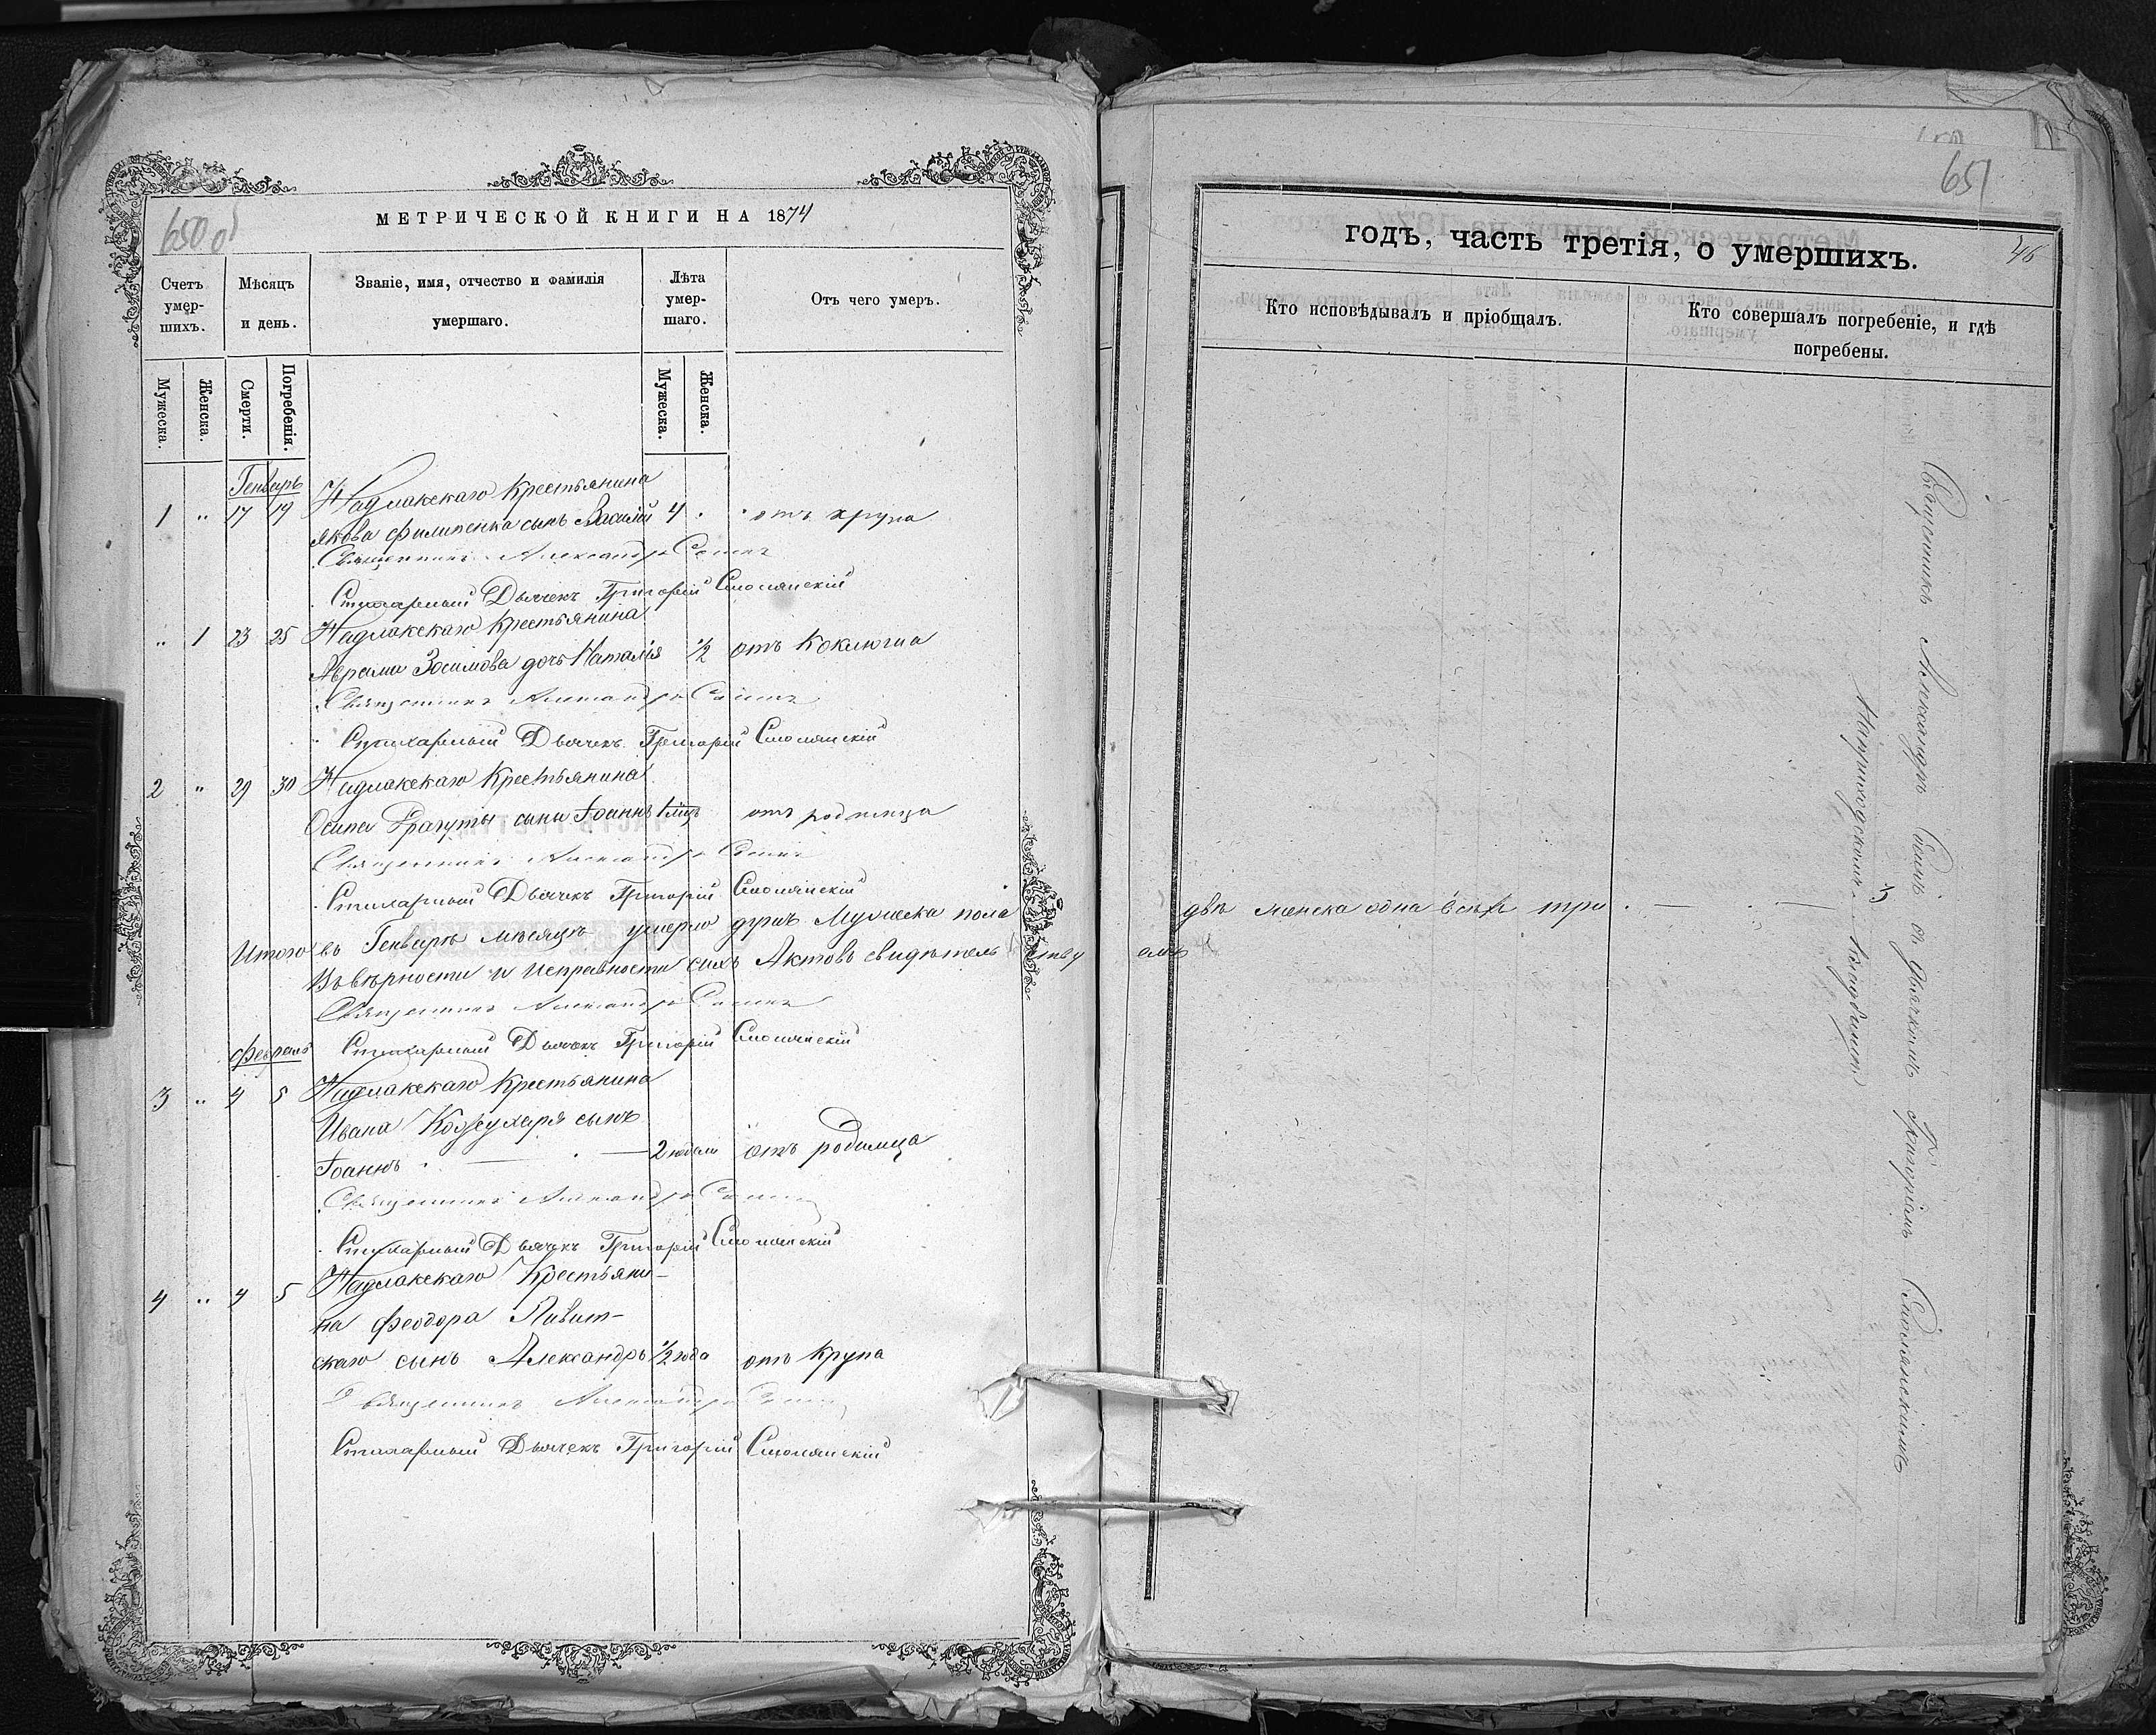 650 об
МЕТРИЧЕСКОЙ КНИГИ НА 1874
Счетъ умер-шихъ.
Мѣсяцъ и день.
Званіе, имя, отчество и фамилія умершаго.
Лѣта умер-шаго.
Отъ чего умеръ.
Мужеска.
Женска.
Смерти.
Погребенія.
Мужеска.
Женска.
Генварь
1 " 17 19 Надлакскаго Крестьянина
Якова Филипенка сынъ Василій 4 отъ крупа
Священникъ Александръ
Стихарный Дьячекъ Григорій Смолянскій
" 1 23 25 Надлакскаго Крестьянина
Аврама Зосимова дочь Наталія 1/2 отъ Коклюша
Священникъ Александръ
Стихарный Дьячекъ Григорій Смолянскій
2 " 29 30 Надлакскаго Крестьянина
Осипа Драгуты сынъ Іоаннъ 1 мцъ отъ родимца
Священникъ Александръ
Стихарный Дьячекъ Григорій Смолянскій
Итого въ Генварѣ мѣсяцѣ умерло душъ Мужеска пола двѣ женска одна всѣхъ три
Вѣверности и исправности сихъ Актовъ свидѣтельствуемъ
Священникъ Александръ
Февраль Стихарный Дьячекъ Григорій Смолянскій
3 " 4 5 Надлакскаго Крестьянина
Ивана Кожухаря сынъ
Іоаннъ 2 недели отъ родимца
Священникъ Александръ
Стихарный Дьячекъ Григорій Смолянскій
4 " 4 5 Надлакскаго Крестьяни-
на Феодора Ливит-
скаго сынъ Александръ 1/2 года отъ Крупа
Священникъ Александръ
Стихарный Дьячекъ Григорій Смолянскій
651
46
годъ, часть третія, о умершихъ.
Кто исповѣдывалъ и пріобщалъ.
Кто совершалъ погребеніе, и гдѣ погребены.
Священникъ Александръ съ дьячкомъ Григоріемъ Смолянскимъ
На приходскомъ кладбищѣ